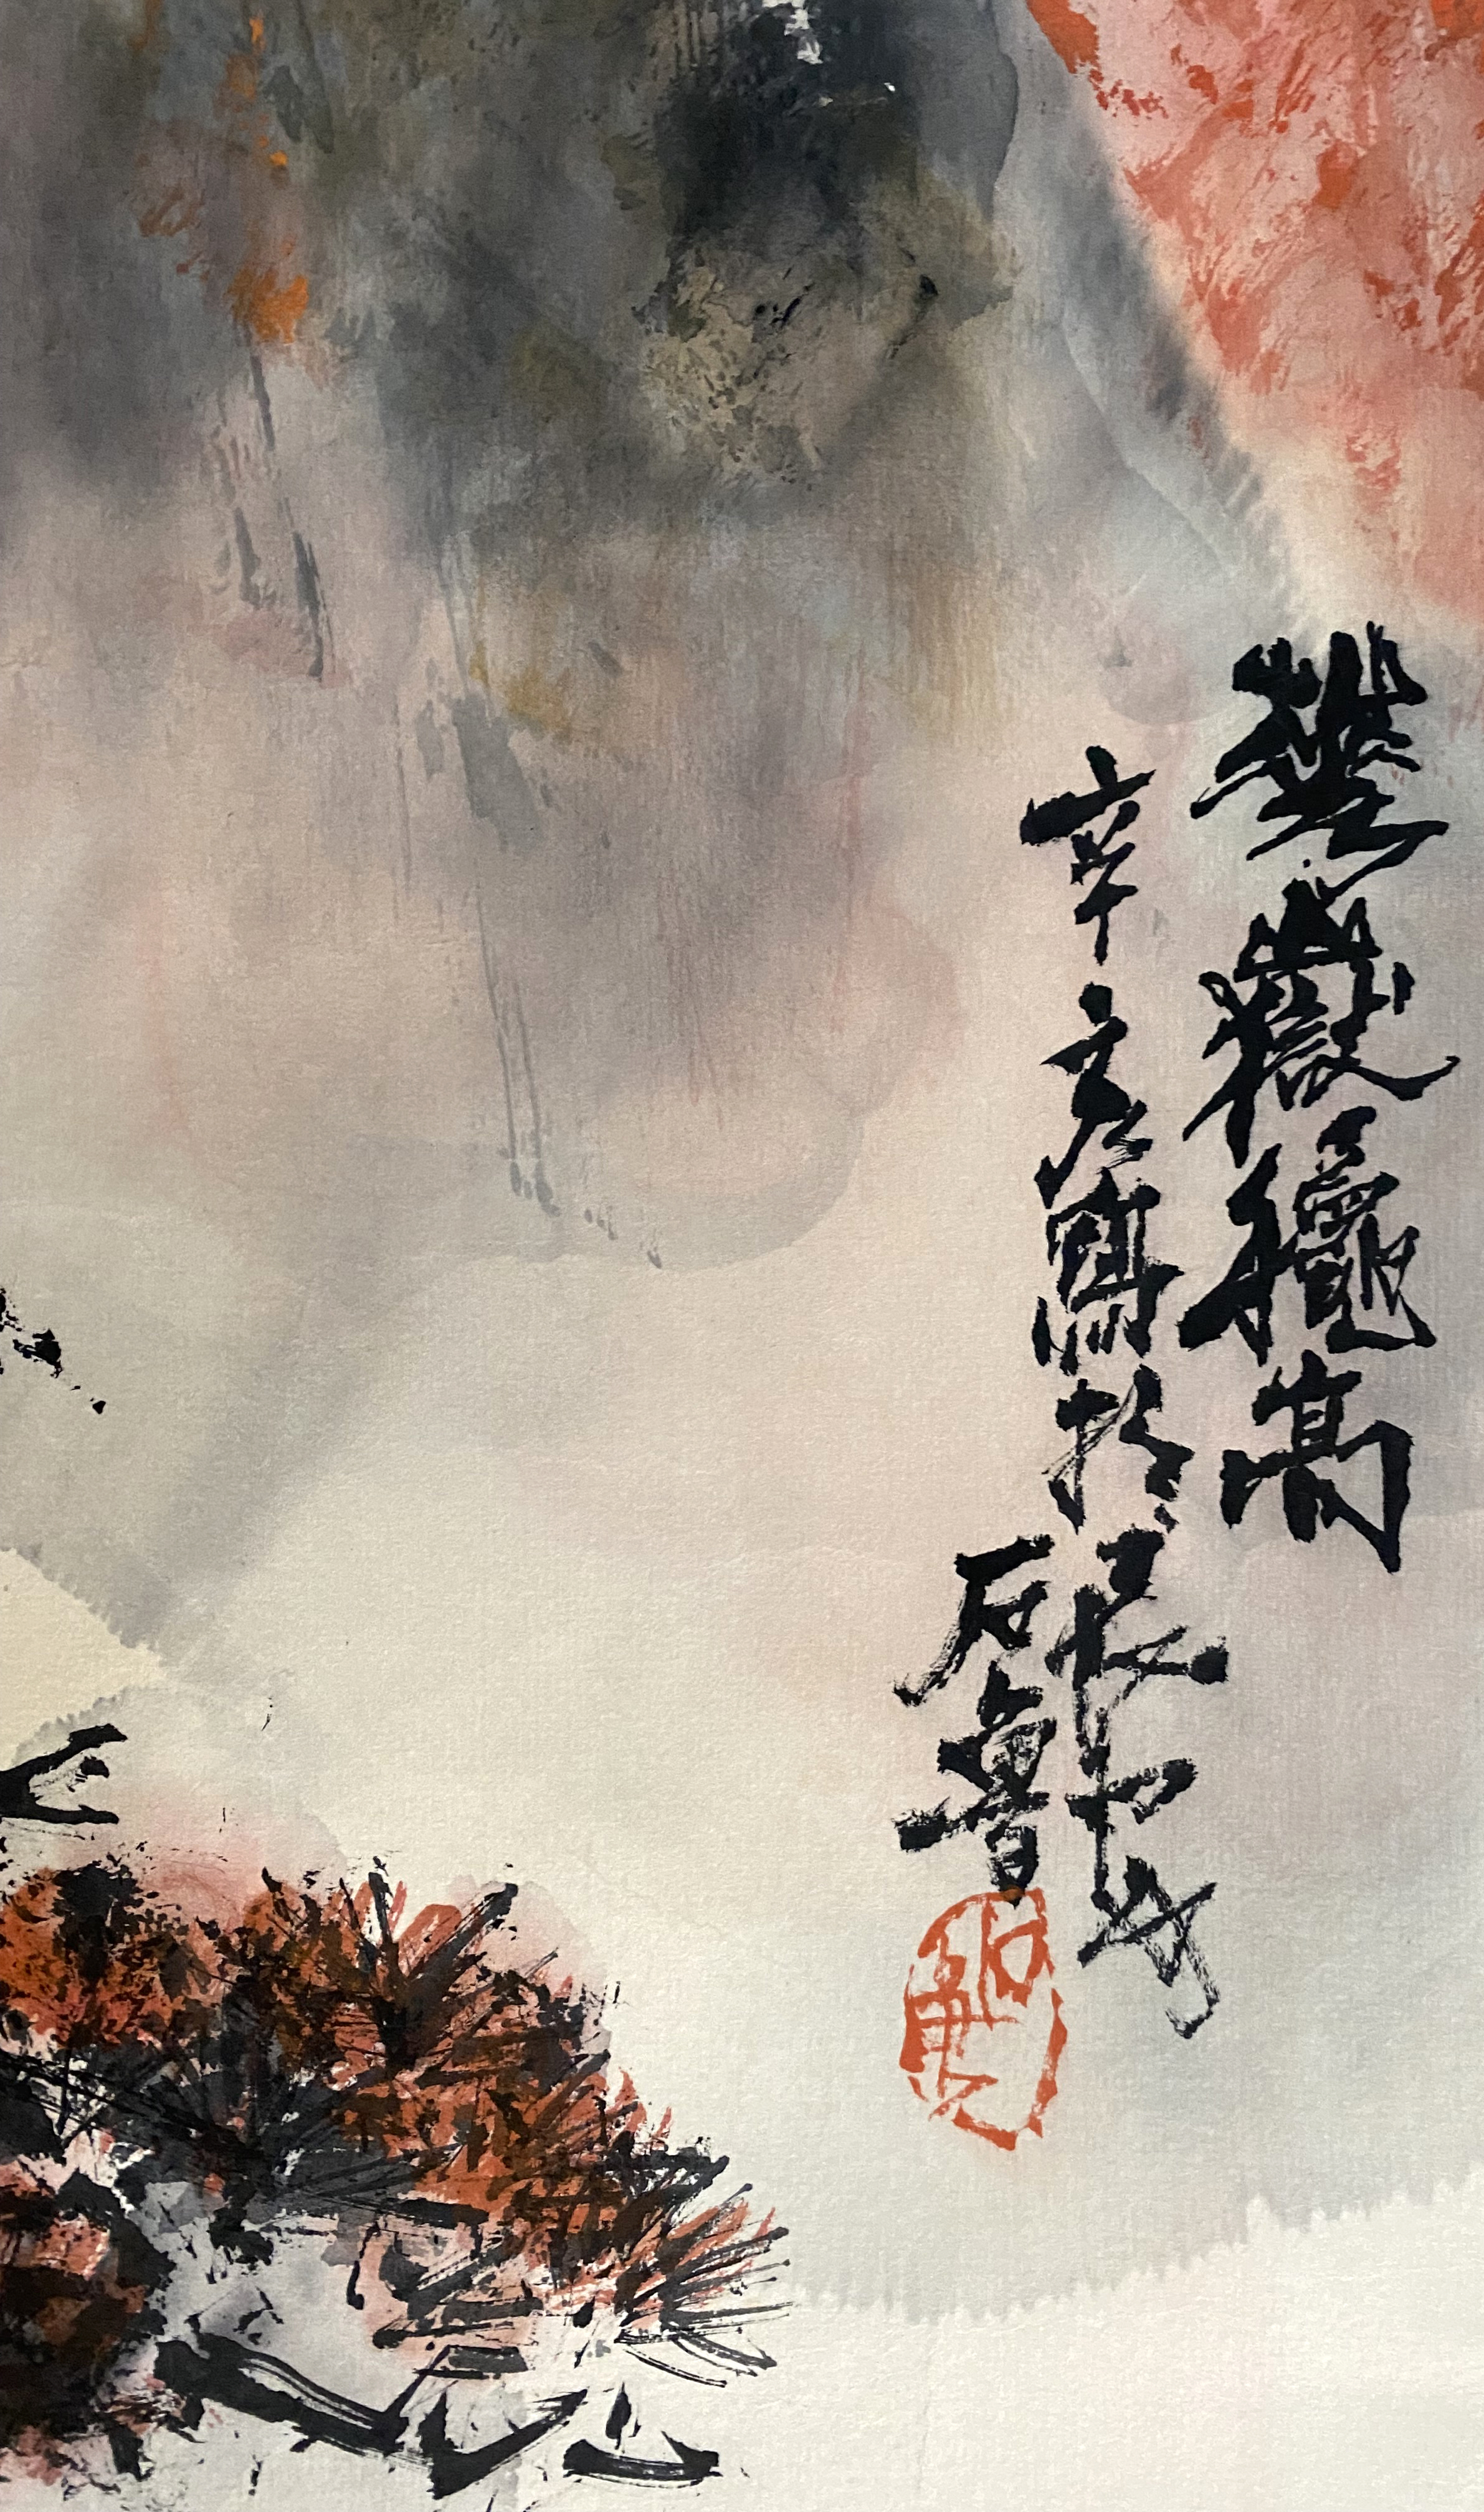 華嶽龝高
辛亥寫於長安
石魯